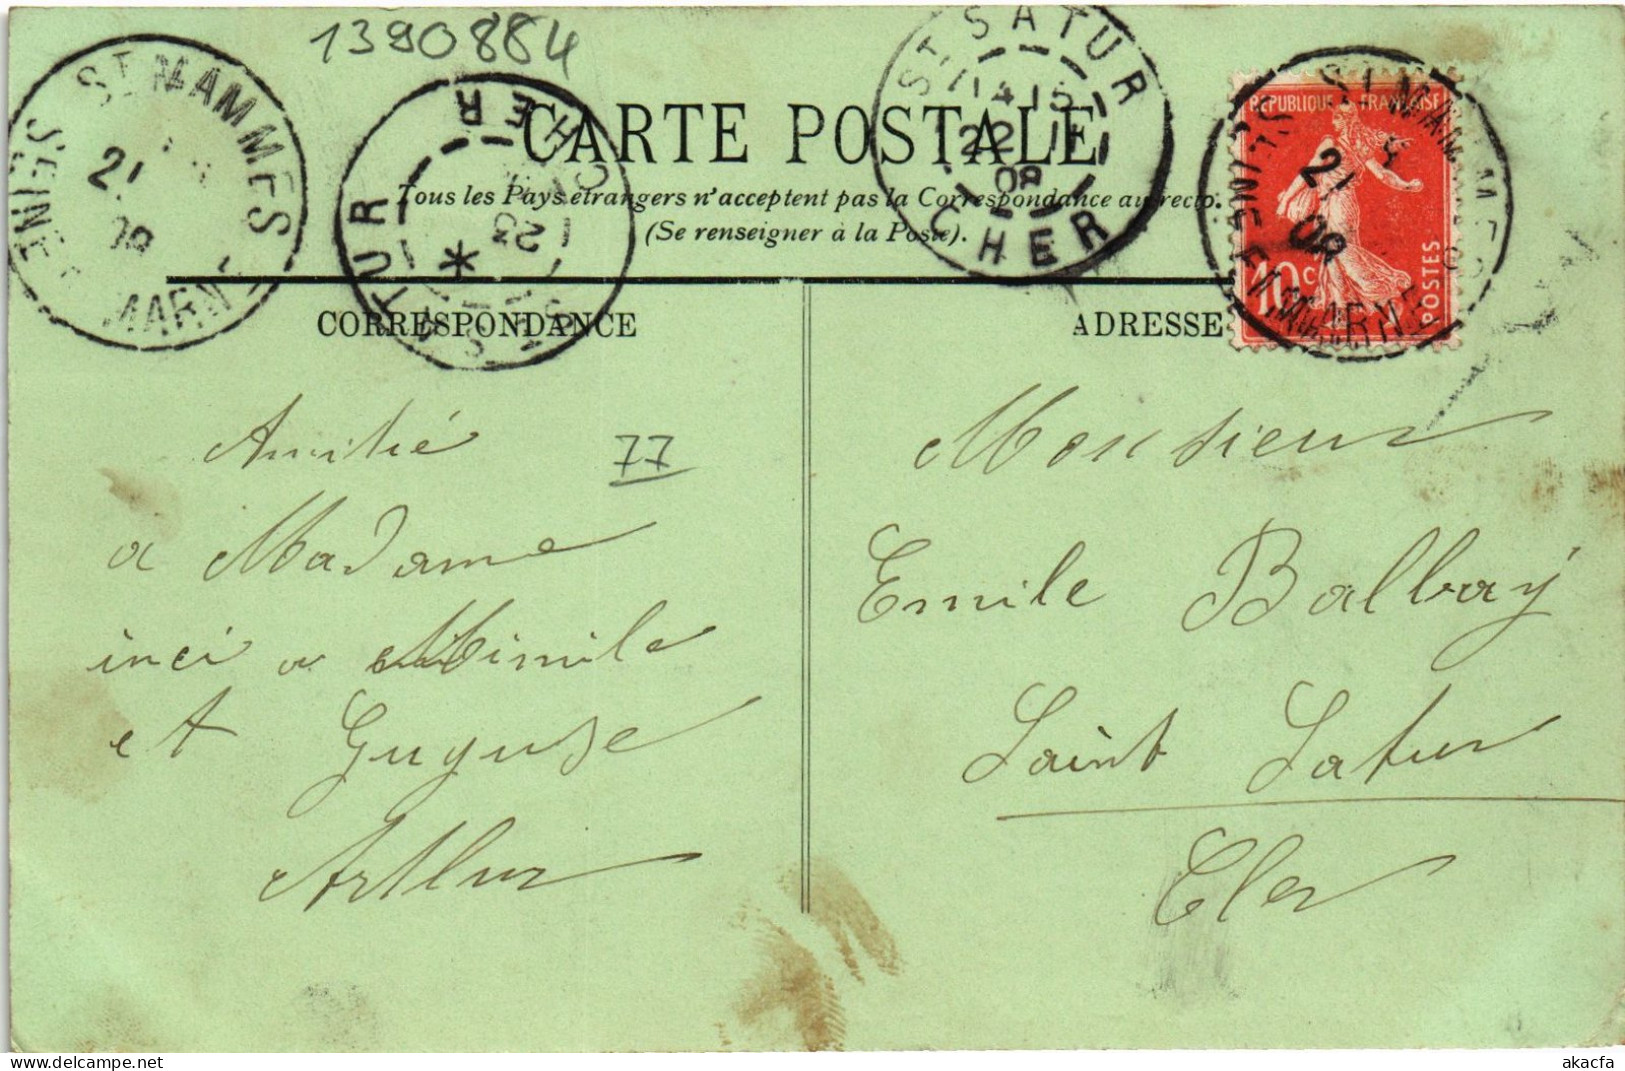 1390884
ST MAMMES
21
08
SEINE ET MARNE
ST SATUR
23
*
CHER
ST SATUR
14 15
22 11
08
CHER
REPUBLIQUE FRANÇAISE
10c
POSTES
ST MAMMES
21
08
SEINE ET MARNE
CARTE POSTALE
Tous les Pays étrangers n'acceptent pas la Correspondance au recto.
(Se renseigner à la Poste).
CORRESPONDANCE
ADRESSE
Amitié
77
a Madame
inci a Mimile
et Guguse
Arthur
Monsieur
Emile Balbay
Saint Satur
Cher
akacfa